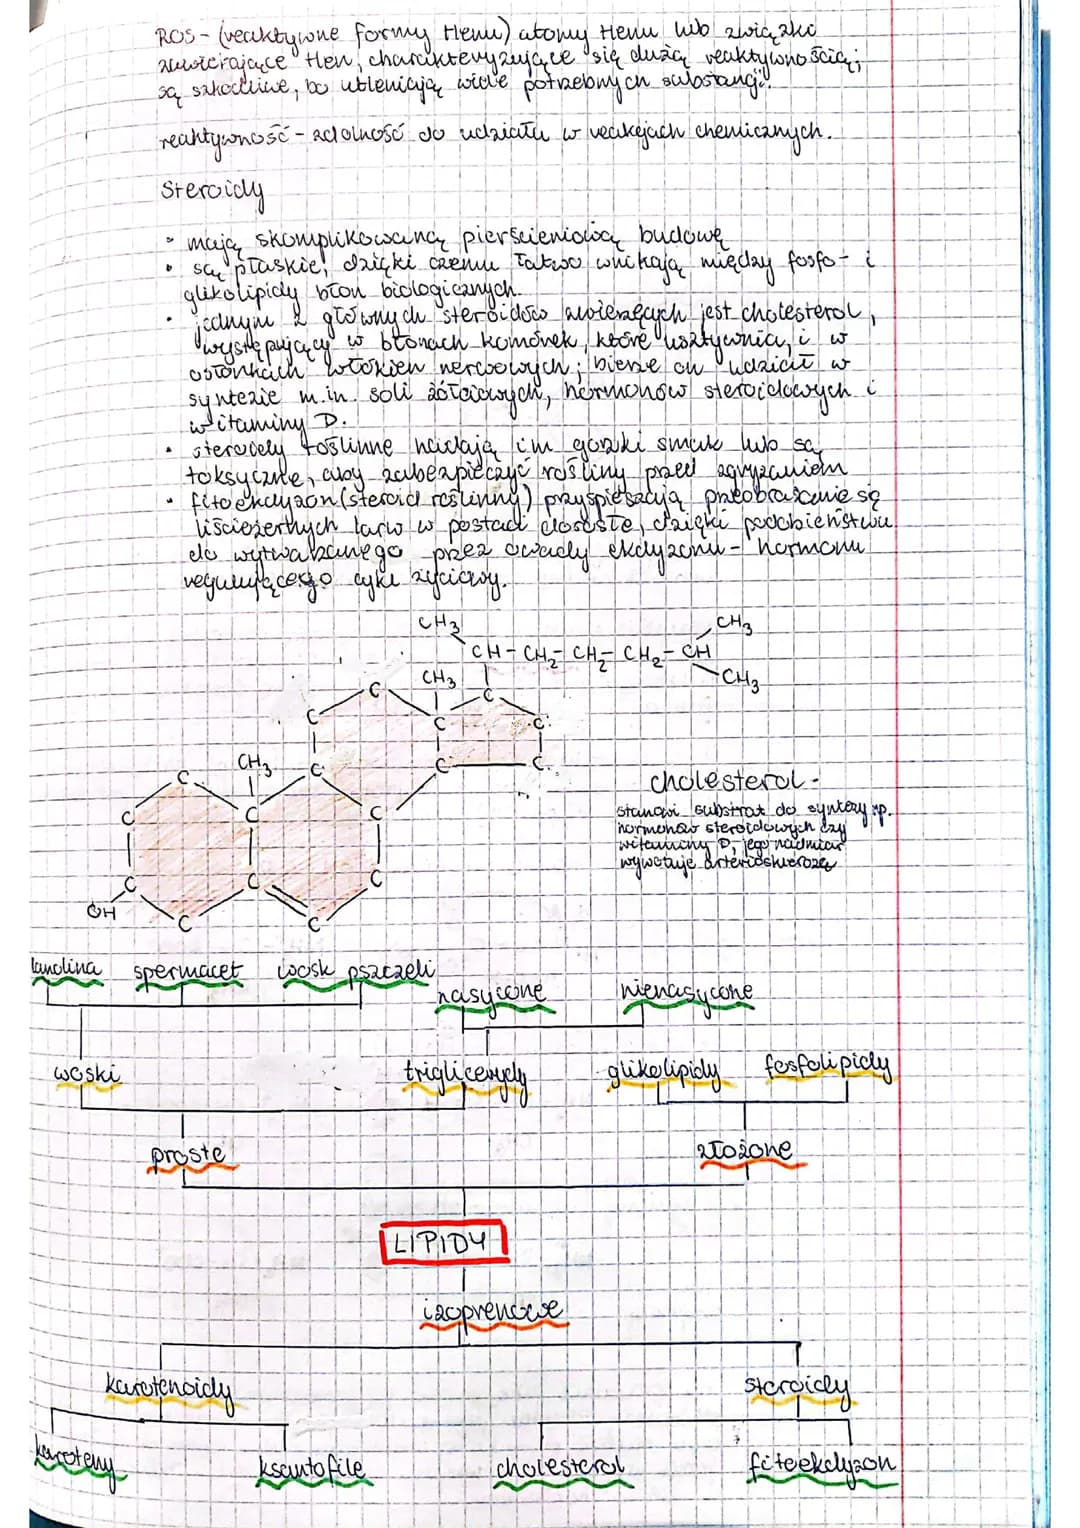 ROS - (reaktywne formy tlenu) atomy tlenu lub związki
zawierające tlen, charakteryzujące się dużą reaktywnością;
są szkodliwe, bo utleniają wiele potrzebnych substancji.
reaktywność - zdolność do udziału w reakcjach chemicznych.
Steroidy
• mają skomplikowaną pierścieniową budowę
• są płaskie, dzięki czemu łatwo wnikają między fosfo- i
glikolipidy błon biologicznych.
• jednym z głównych steroidów zwierzęcych jest cholesterol,
występujący w błonach komórek, które usztywnia, i w
osłonkach włókien nerwowych; bierze on udział w
syntezie m.in. soli żółciowych, hormonów steroidowych i
witaminy D.
• steroidy roślinne nadają im gorzki smak lub są
toksyczne, aby zabezpieczyć rośliny przed zgryzaniem
• fitoekdyzon (steroid roślinny) przyspieszają przeobrażanie się
liściożernych larw w postaci dorosłe, dzięki podobieństwu
do wytwarzanego przez owady ekdyzonu - hormonu
regulującego cykl życiowy.
CH3 CH3
CH - CH2 - CH2 - CH2 - CH
CH3 CH3
C C
C C C
CH3 C C C
C C C
cholesterol -
stanowi substrat do syntezy np.
hormonów steroidowych czy
witaminy D, jego nadmiar
wywołuje arteriosklerozę
C C C
OH C C
lanolina spermacet wosk pszczeli
nasycone nienasycone
woski triglicerydy glikolipidy fosfolipidy
proste złożone
LIPIDY
izoprenowe
karotenoidy steroidy
karoteny ksantofile cholesterol fitoekdyzon